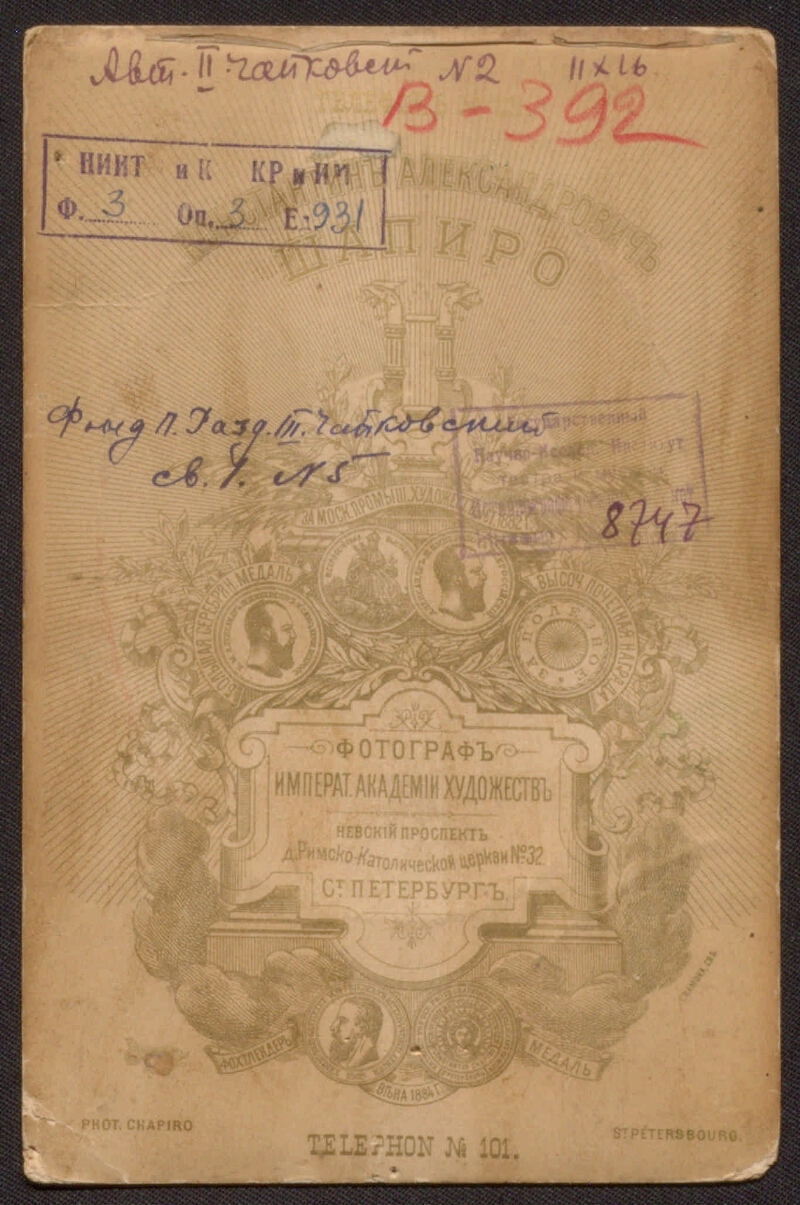 Авт. II Чайковский N2 II x 16
В-392
НИИТ и К КР и ИМ
Ф. 3 Оп. 3 Е. 931
АЛЕКСАНДРОВИЧЪ
ШАПИРО
Фонд П. Разд. III. Чайковский
св. 1. N5
Государственный
Научно-Исслед. Институт
8747
ЗА МОСК. ПРОМЫШ. ХУДОЖ.
БОЛЬШАЯ СЕРЕБРЯН. МЕДАЛЬ
ВЫСОЧ. ПОЧЕТНАЯ НАГРАДА
ЗА ПОЛЕЗНОЕ
ФОТОГРАФЪ
ИМПЕРАТ. АКАДЕМІИ ХУДОЖЕСТВЪ
НЕВСКІЙ ПРОСПЕКТЪ
д. Римско-Католической церкви № 32
Ст ПЕТЕРБУРГЪ
ФОХТЛЕНДЕРЪ
МЕДАЛЬ
ВѢНА 1884 г.
PHOT. CHAPIRO
ST PÉTERSBOURG.
TELEPHON № 101.